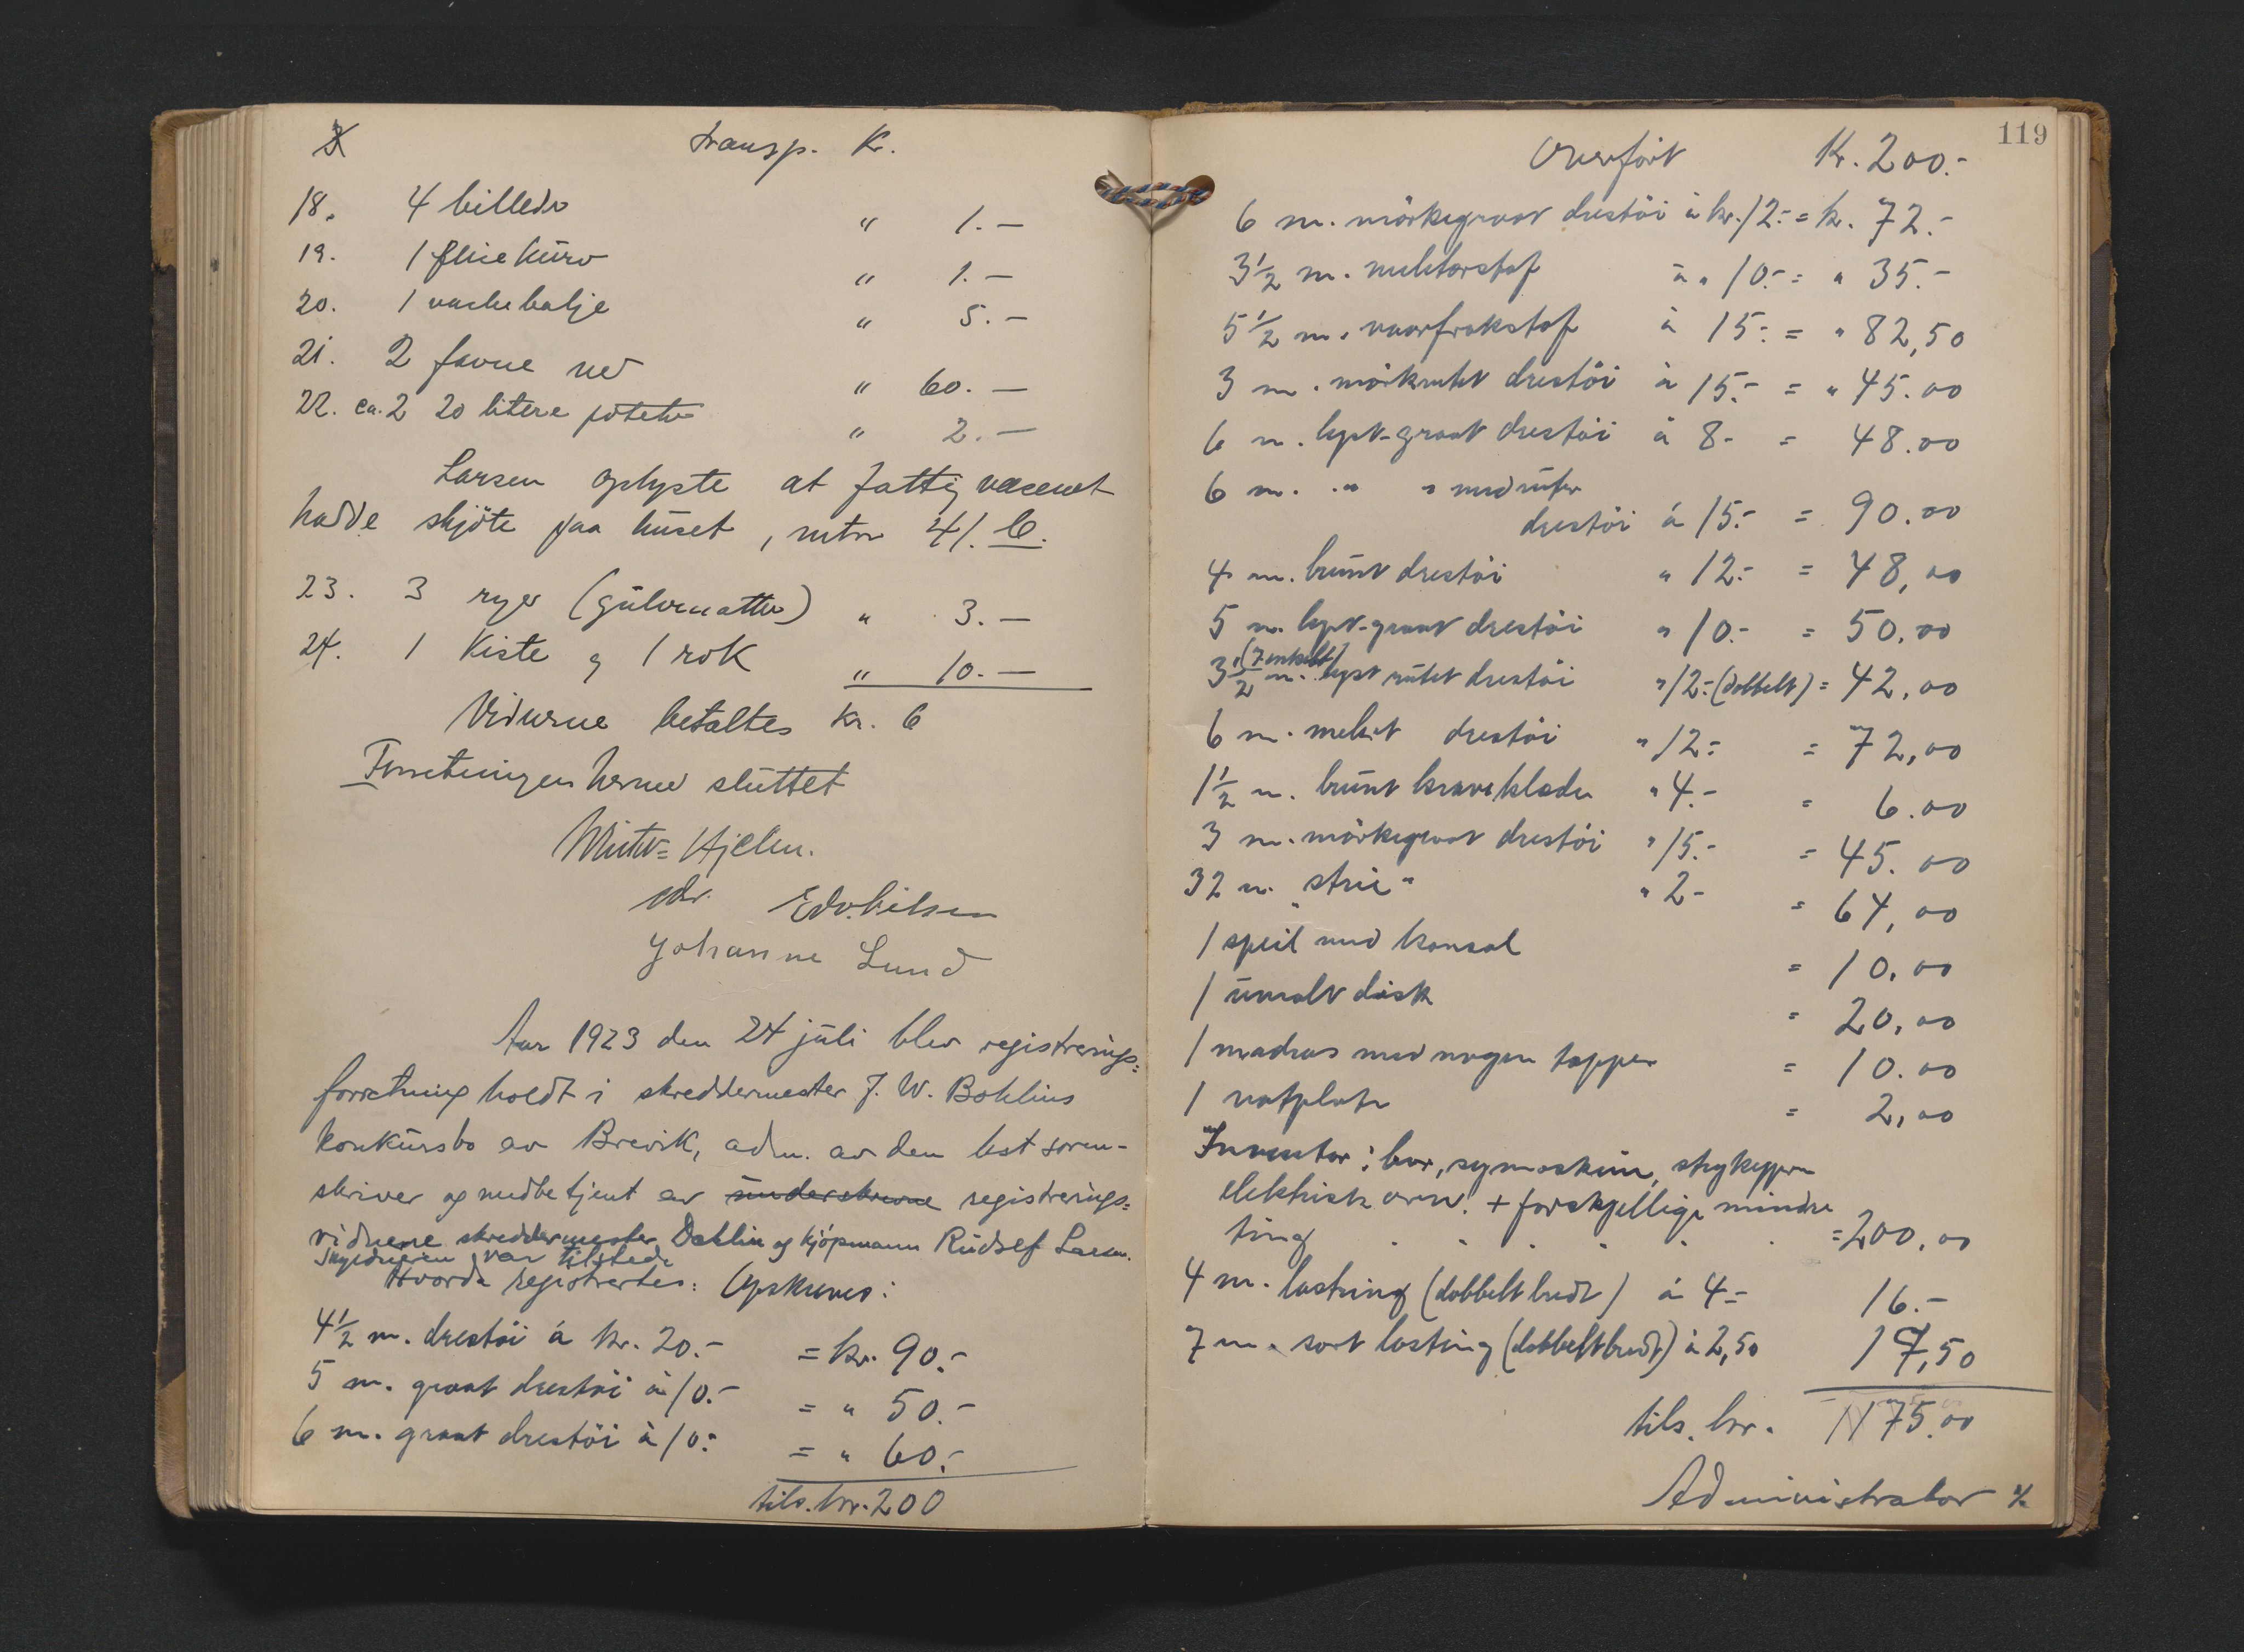 transp. Kr.
18. 4 billeder " 1.-
19. 1 flise kürv " 1.-
20. 1 vaskebalje " 5.-
21. 2 favne ved " 60.-
22. ca. 2 20 litere poteter " 2.-
Larsen oplyste at fattigvæsenet
hadde skjöte paa hüset, mtr 41. 6.
23. 3 ryer (gülvmatter) " 3.-
24. 1 Kiste og 1 rok " 10.-
Vidnerne betaltes kr. 6
Forretningen hermed slüttet
Hjelm.
Edv. Nilsen
Johanne Lund
Aar 1923 den 24 jüli blev registrerings=
forretning holdt i skreddermester J. W. Bohlins
konkürsbo av Brevik, adm. av den best. soren-
skriver og medbetjent av ünderskrevne registrerings=
vidnene skreddermester Dahlin og kjøpmann Rüdolf Larsen.
Skyldneren var tilstede
Hvorda registrertes: Opskreves:
4 1/2 m. drestöi á kr. 20.- = kr. 90.-
5 m. graat drestöi á 10.- = " 50.-
6 m. graat drestöi á 10.- = " 60.-
tils. kr. 200
119
Overfört Kr. 200.-
6 m. mörkegraat drestöi á kr. 12.- = kr. 72.-
3 1/2 m. á " 10.- = " 35.-
5 1/2 m. vaarfrakstof á 15.- = " 82,50
3 m. mörkrutet drestöi á 15.- = " 45.00
6 m. lyst-graat drestöi á 8- = 48.00
6 m. " " med rüter
drestöi á 15.- = 90.00
4 m. brünt drestöi " 12.- = 48,00
5 m. lyst-graat drestöi " 10.- = 50.00
(7 enkelt)
3 1/2 m. lyst rütet drestöi " 12.- (dobbelt) = 42,00
6 m. melert drestöi " 12.- = 72,00
1 1/2 m. brünt kraveklæde " 4.- = 6.00
3 m. mörkegraat drestöi " 15.- = 45.00
32 m. "strie" " 2- = 64,00
1 speil med konsol = 10.00
1 ümalt disk = 20,00
1 madras med nogen tepper = 10.00
1 = 2,00
Inventar: bor, symaskin, strykejern
elektrisk ovn. + forskjellige mindre
ting = 200,00
4 m. lastring (dobbelt bredt) á 4.- 16.-
7 m. sort lasting (dobbelt bredt) á 2,50 17,50
tils. kr. 1175.00
Administrator %